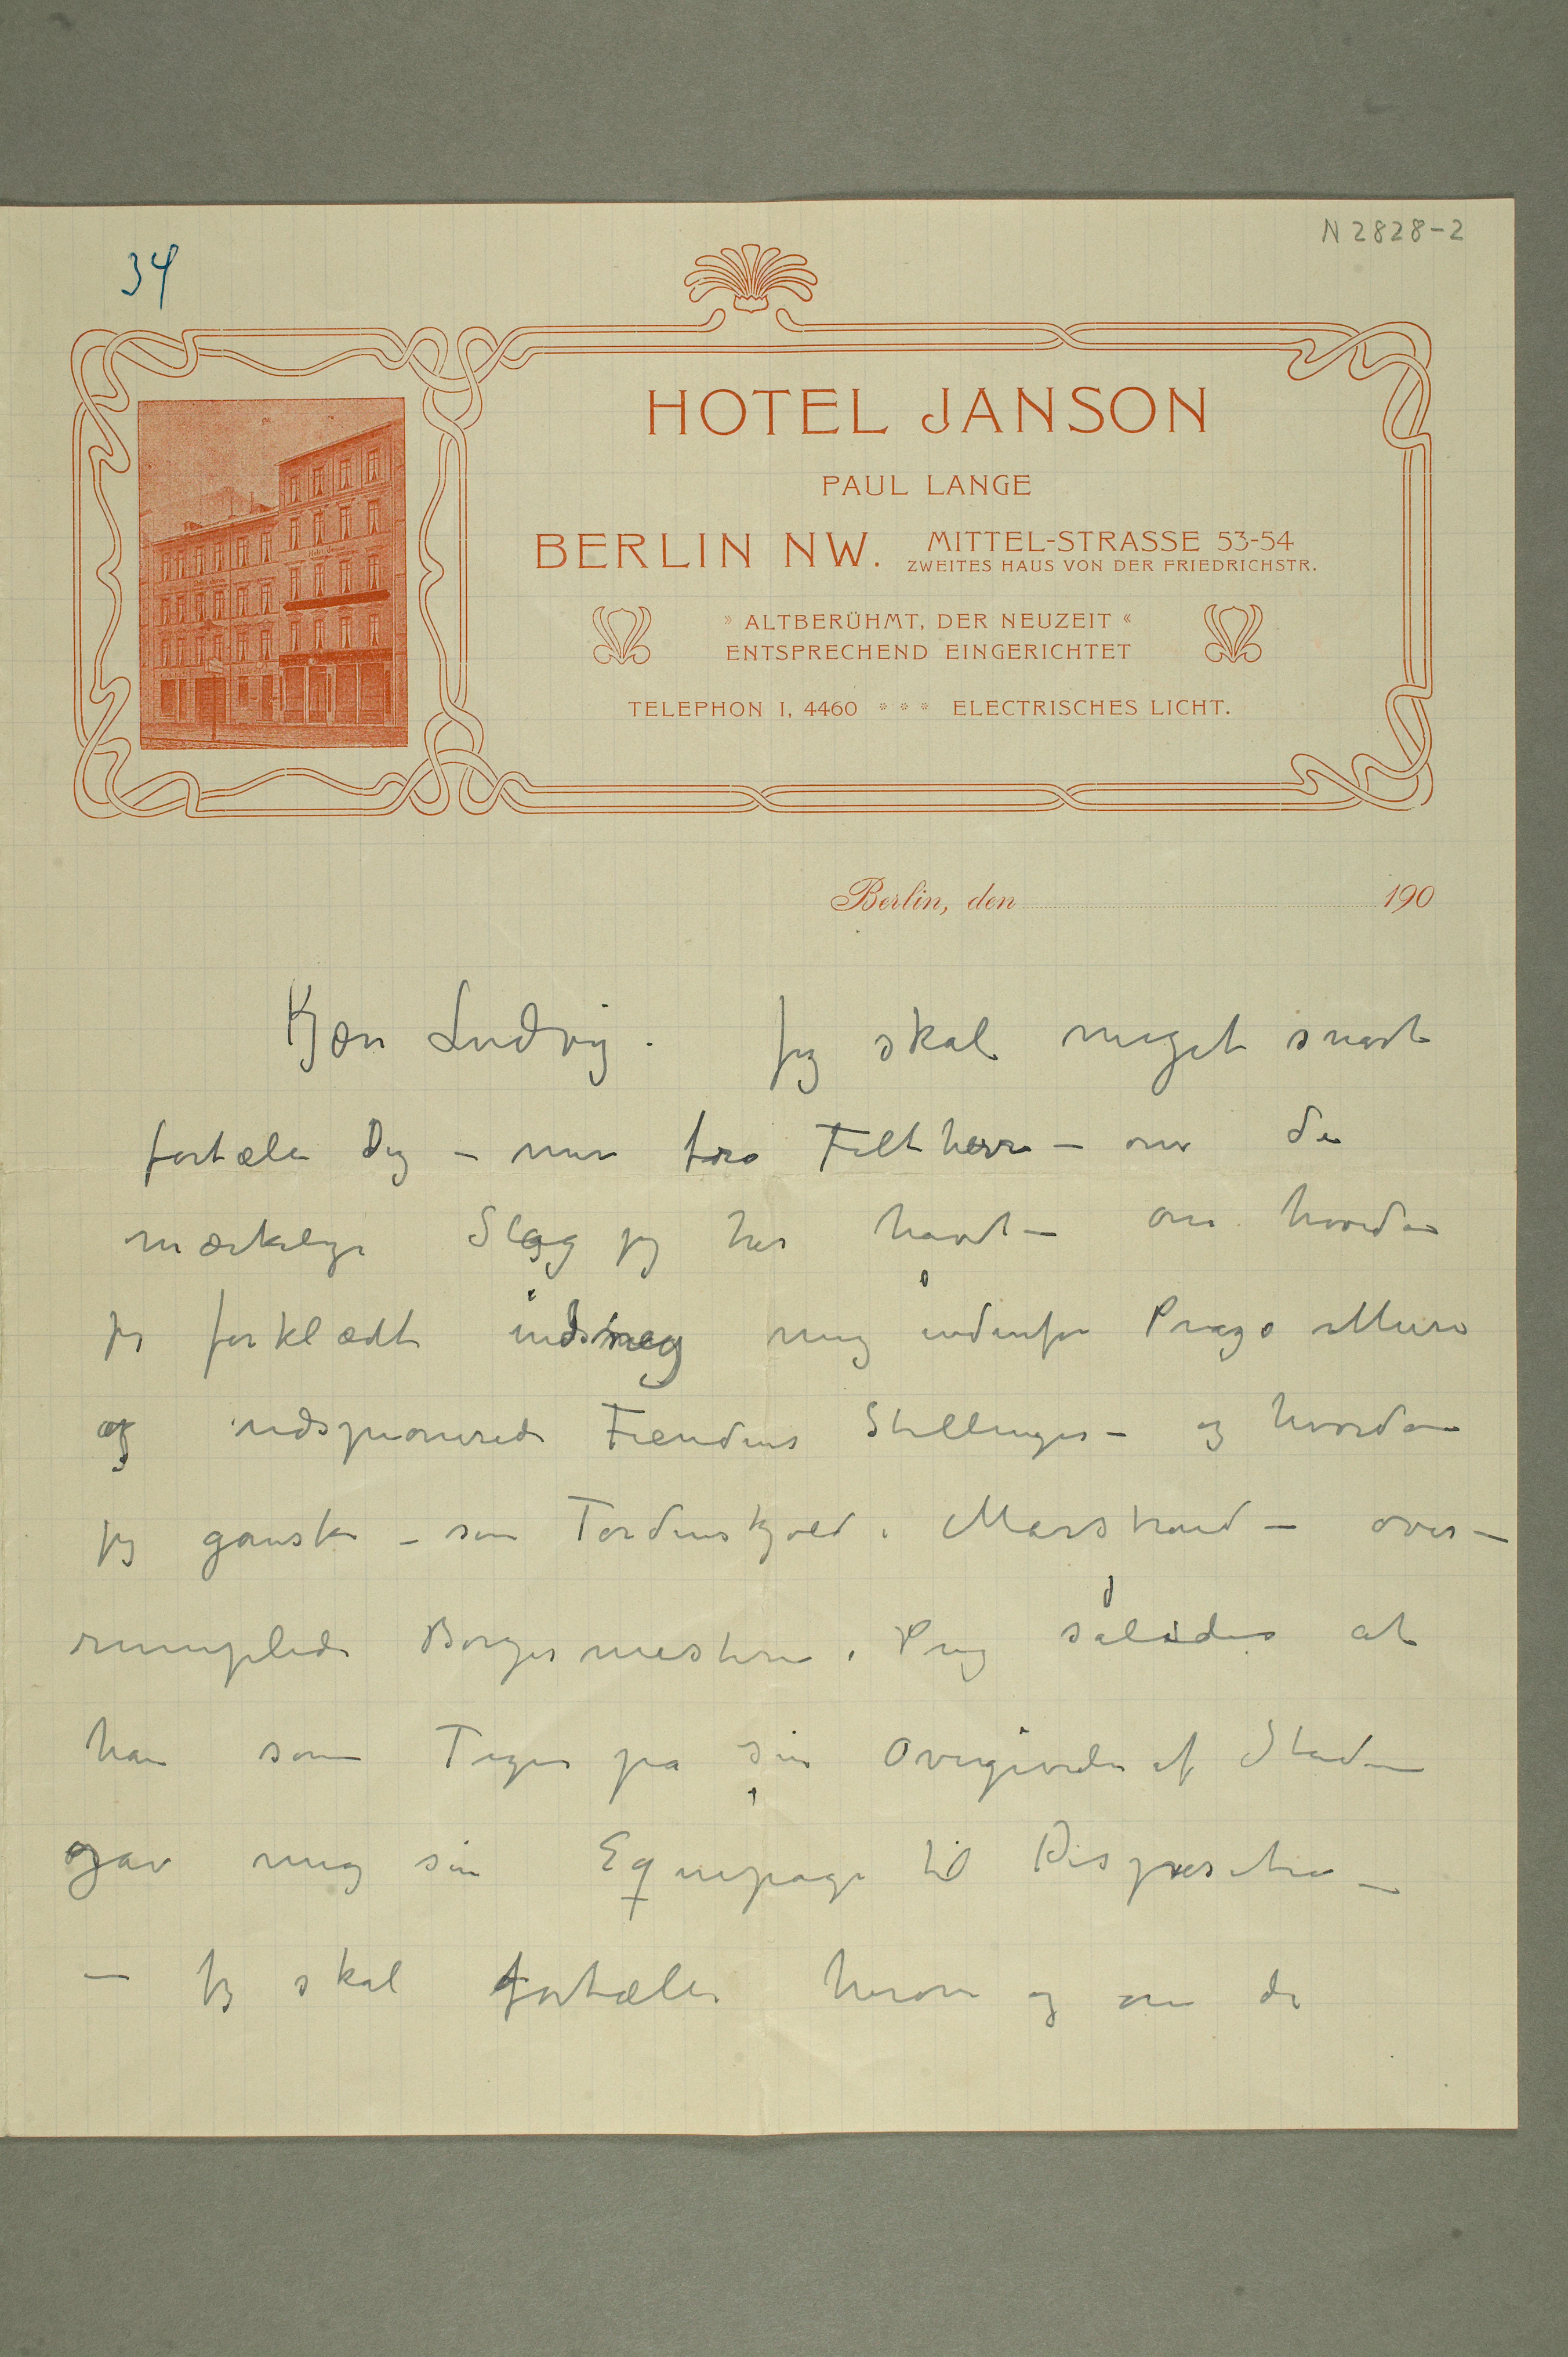 N 2828-2
34
HOTEL JANSON
PAUL LANGE
BERLIN NW. MITTEL-STRASSE 53-54
ZWEITES HAUS VON DER FRIEDRICHSTR.
» ALTBERÜHMT, DER NEUZEIT «
ENTSPRECHEND EINGERICHTET
TELEPHON I, 4460 * * * ELECTRISCHES LICHT.
Berlin, den 190
Kjære Ludvig. Jeg skal meget snart
fortælle Dig – min tro Feltherre – om de
mærkelige Slag jeg har havt – om hvordan
jeg forklædt indsneg mig indenfor Prags Mure
og udspionerede Fiendens Stillinger – og hvordan
jeg ganske – som Tordenskjold i Marstrand – over-
rumplede Borgermesteren i Prag således at
han som Tegn på sin Overgivelse af Staden
gav mig sin Equipage til Disposition –
– Jeg skal fortælle herom og om de